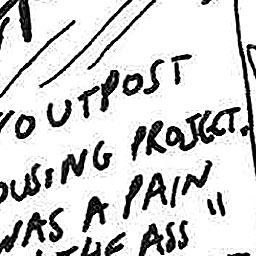 OUTPOST
OUSING PROJECT.
WAS A PAIN
THE ASS"